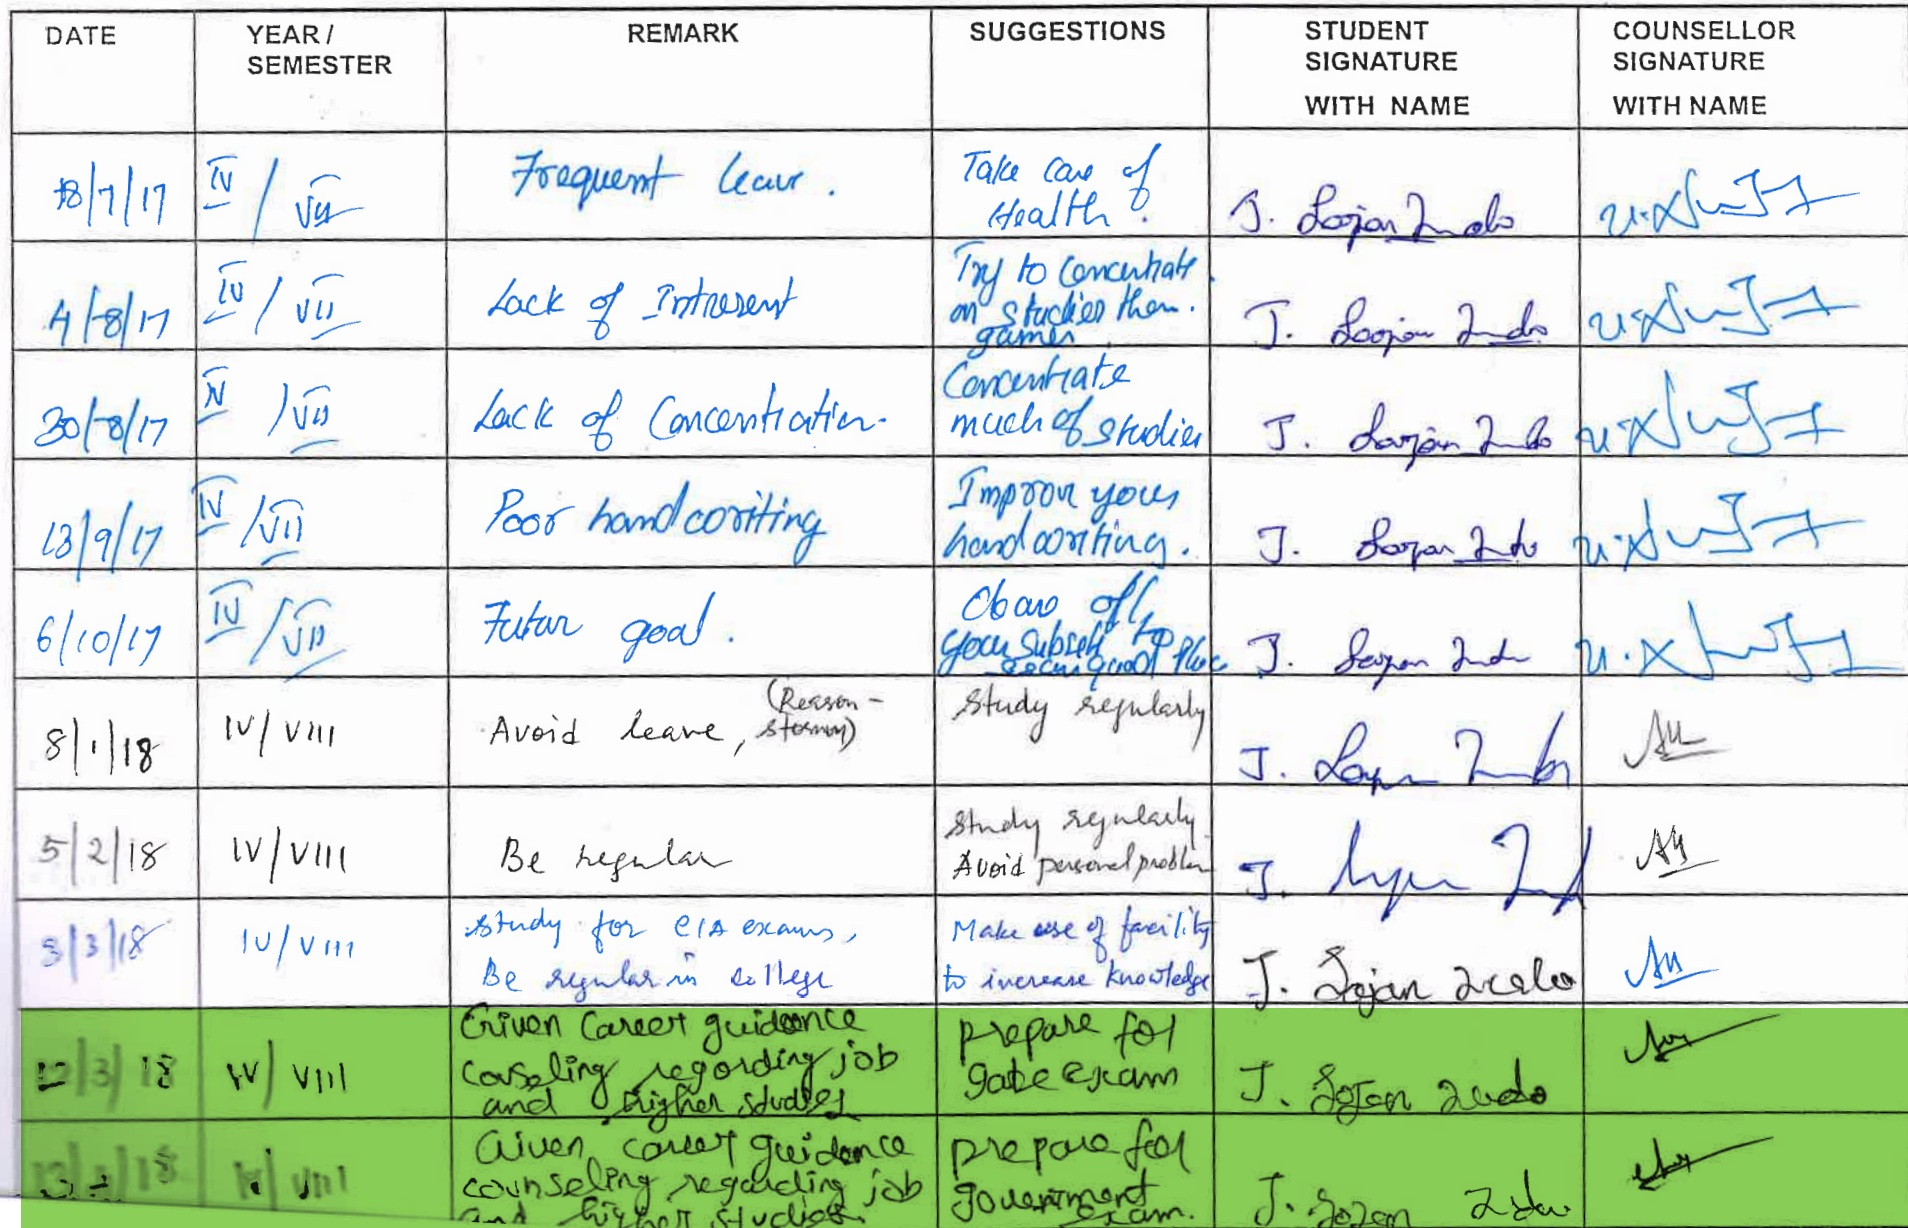 DATE
YEAR /
SEMESTER
REMARK
SUGGESTIONS
STUDENT
SIGNATURE
WITH NAME
COUNSELLOR
SIGNATURE
WITH NAME
18/7/17
IV / VII
Frequent leave .
Take care of
Health .
J.
4/8/17
IV / VII
Lack of Intresent
Try to Concentrate
on studies then.
games
J.
30/8/17
IV / VII
Lack of Concentration.
Concentrate
much of studies
J.
13/9/17
IV / VII
Poor handwriting
Improve your
handwriting.
J.
6/10/17
IV / VII
Futur goal .
your
J.
8/1/18
IV / VIII
Avoid leave, (Reason -
Study regularly
J.
5/2/18
IV / VIII
Be regular
Study regularly
Avoid personal problem
J.
3/18
IV / VIII
Study for CIA exams,
Be regular in college
Make use of facility
to increase knowledge
J. Lojan
/3/18
IV / VIII
Given Career guidance
couseling regarding job
and higher studies
prepare for
gate exam
J. Lojan
18
VIII
Given career guidance
counseling regarding job
and higher studies.
prepare for
government
exam.
J.